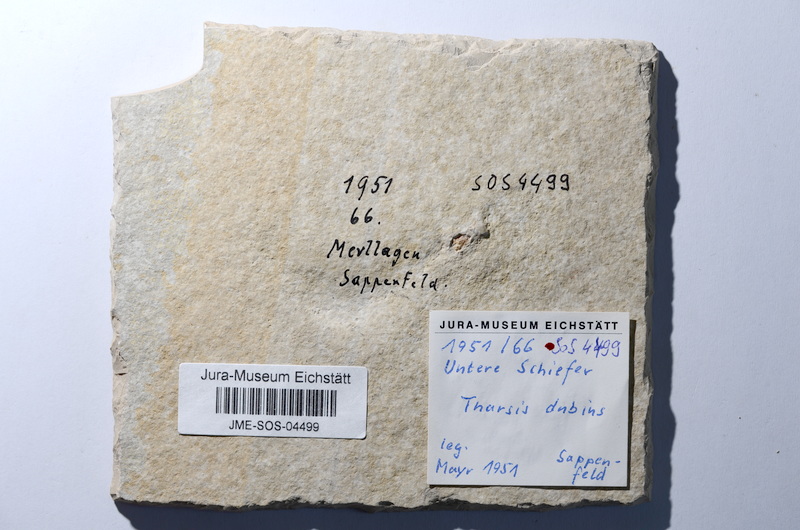 1951
SOS4499
66.
Merllagen
Sappenfeld.
JURA-MUSEUM EICHSTÄTT
1951/66 SOS 4499
Untere Schiefer
Tharsis dubius
leg.
Mayr 1951
Sappen-
feld
Jura-Museum Eichstätt
JME-SOS-04499